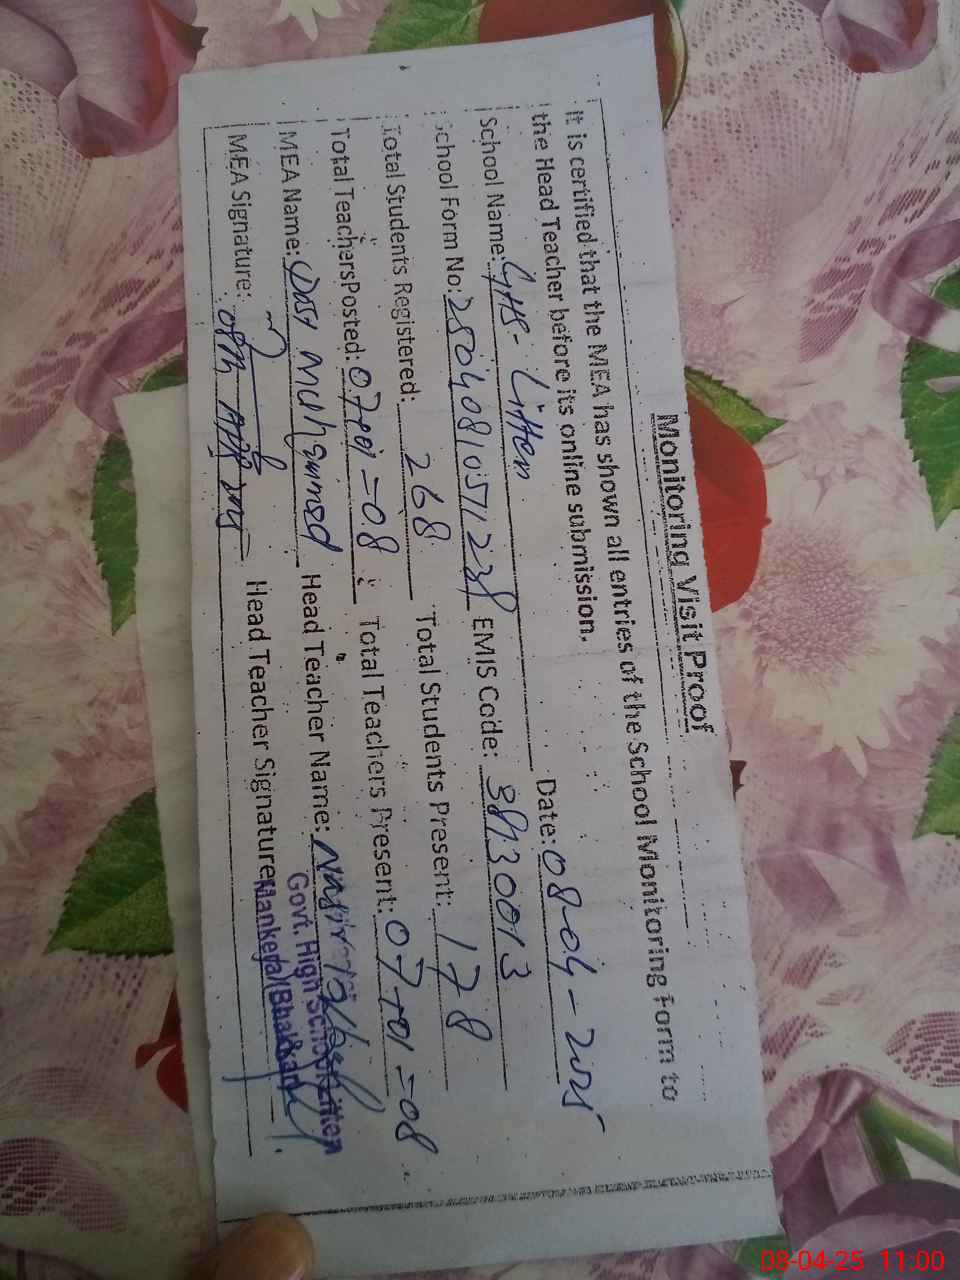 Monitoring Visit Proof
It is certified that the MEA has shown all entries of the School Monitoring Form to
the Head Teacher before its online submission.
School Name: GHS- Litten Date: 08-04-2025
School Form No: 2504081051238 EMIS Code: 38130013
Total Students Registered: 268 Total Students Present: 178
Total TeachersPosted: 07+01=08 Total Teachers Present: 07+01=08
MEA Name: Dost Muhammad Head Teacher Name: Nasir
Govt. High School Litten
MEA Signature: 08th April 2025 Head Teacher Signature
Mankera (Bhakkar)
08-04-25 11:00